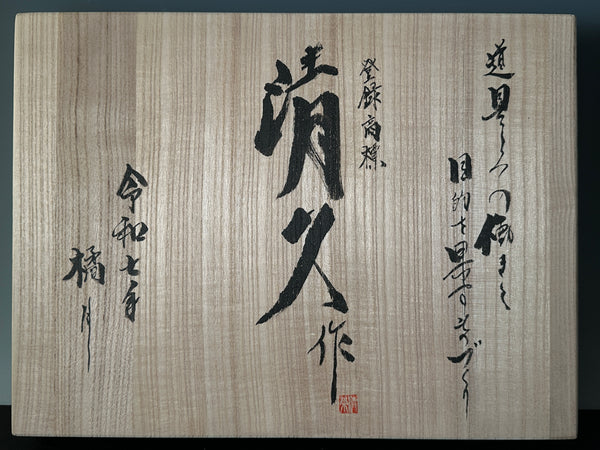 道具としての働きと
目的を果すものづくり
登録商標
清久作
令和七年
橘月